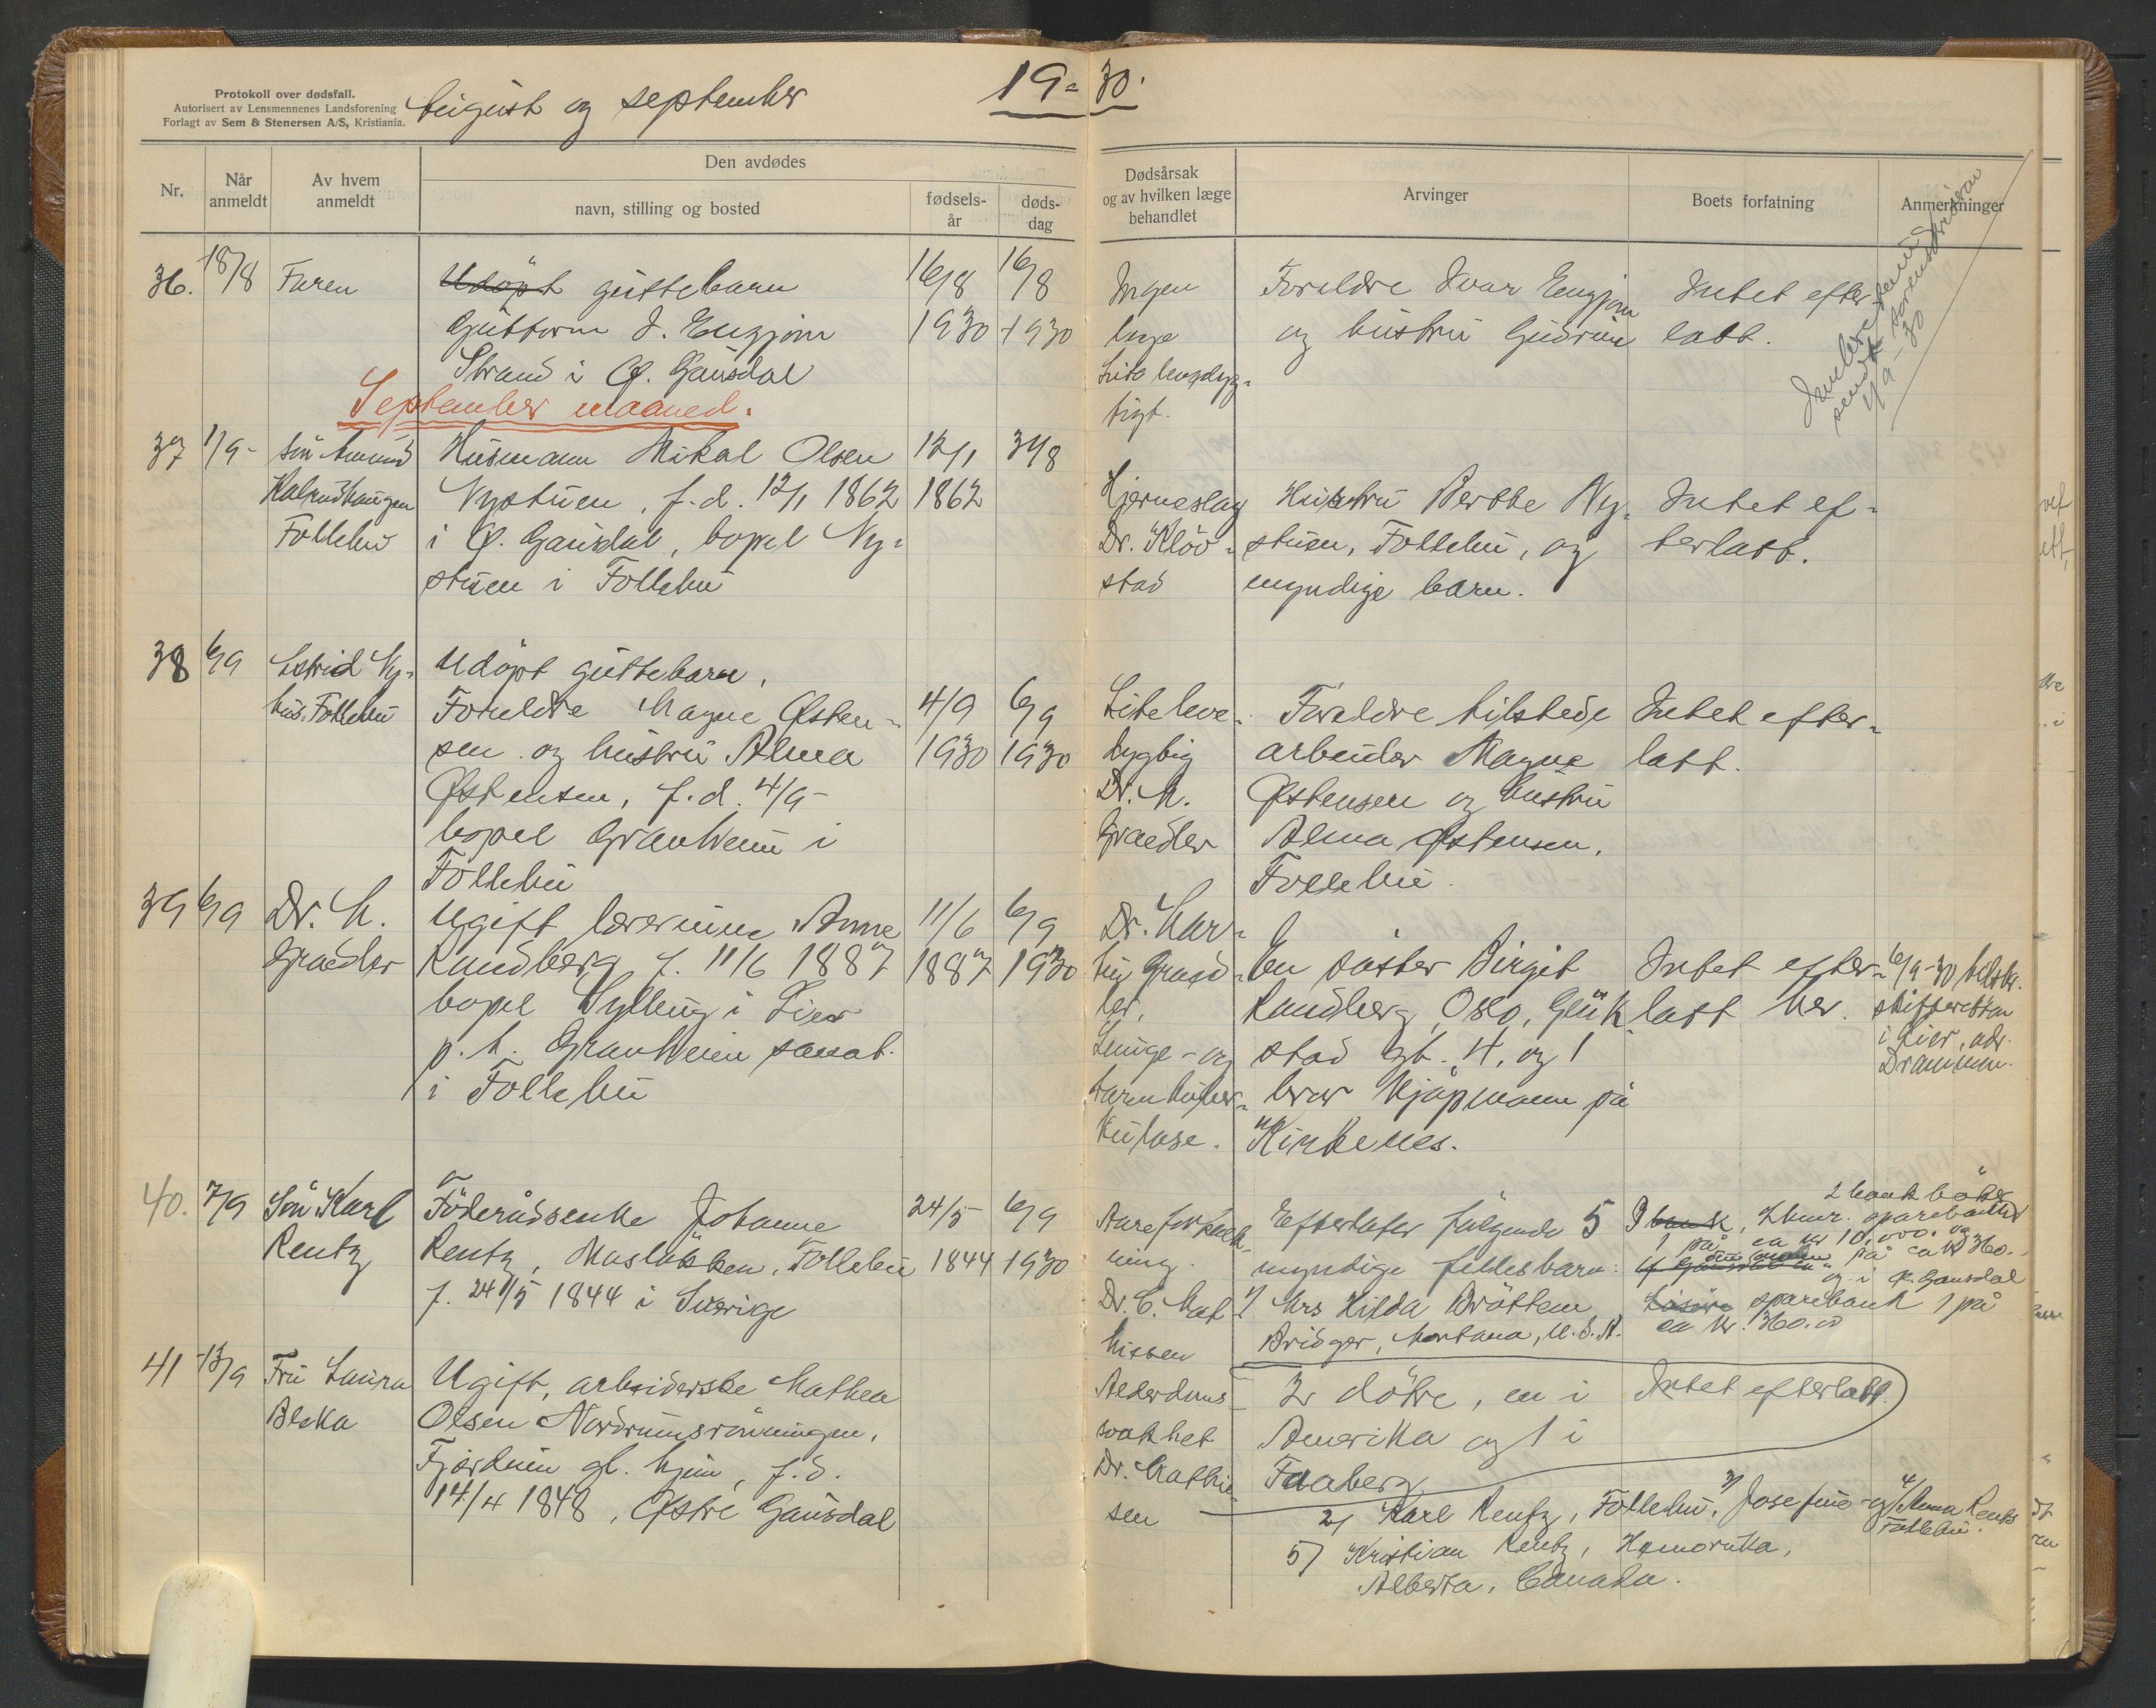 Protokoll over dødsfall.
Autorisert av Lensmennenes Landsforening
Forlagt av Sem & Stenersen A/S, Kristiania.
August og september
19-30.
Nr.
Når anmeldt
Av hvem anmeldt
Den avdødes
navn, stilling og bosted
fødsels-år
døds-dag
Dødsårsak
og av hvilken læge
behandlet
Arvinger
Boets forfatning
Anmerkninger
36. 18/8 Faren
Udöpt guttebarn
Guttorm I. Engjom
Strand i Ø. Gausdal
16/8
1930
16/8
1930
Ingen
læge
Foreldre Ivar Engjom
og hustru Gudrun
Intet efter-
latt.
sendt sorenskriveren
1/9-30
September maaned.
37 1/9- sön Amund
Follebu
Husmann Mikal Olsen
Nystuen, f.d. 12/1 1862
i Ø. Gausdal, bopel Ny-
stuen i Follebu
12/1
1862
31/8
Hjerneslag
Dr. Klöv-
stad
Hustru Berthe Ny-
stuen, Follebu, og
myndige barn.
Intet ef-
terlatt.
38 6/9 Astrid Ny-
hus, Follebu
Udöpt guttebarn,
Foreldre Magne Østen-
sen og hustru Alma
Østensen, f.d. 4/9-
bopel Granheim i
Follebu
4/9
1930
6/9
1930
Lite leve-
dygtig
Dr. M.
Græedler
Foreldre tilstede
arbeider Magne
Østensen og hustru
Alma Østensen,
Follebu.
Intet efter-
latt.
39 6/9 Dr. M.
Graedler
Ugift lærerinne Anne
Randberg f. 11/6 1887
bopel Sylling i Lier
p.t. Granheim sanat.
i Follebu
11/6
1887
6/9
1930
Dr. Mar-
tin Græd-
ler,
Lunge- og
tarmtuber-
kulose.
En söster Birgit
Randberg, Oslo, Glük-
stad gt. 4, og 1
bror kjöpmann på
Kirkenes.
Intet efter-
latt her.
6/9-30 tilskr.
skifteretten
i Lier, adr.
Drammen.
40. 7/9 Sön Karl
Rentz
Föderådsenke Johanne
Rentz, Maslökken, Follebu
f. 24/5 1844 i Sverige
24/5
1844
6/9
1930
Aareforkalk-
ning.
Dr. C. Mat-
hissen
Efterlater fölgende 5
myndige fellesbarn:
1/ Mrs Hilda Bråtten
Bridger, Montana, U.S.A.
2 bank böker
sparebank
1 på ca kr 10,000. og
på ca kr 360.-
og i Ø. Gausdal
sparebank 1 på
ca kr. 360.00
41 13/9 Fru Laura
Bleka
Ugift, arbeiderske Mathea
Olsen Nordrumsrönningen,
Fjerdum gl. hjem, f.d.
14/4 1848, Østre Gausdal
Alderdoms-
svakhet
Dr. Mathie-
sen
2 dötre, en i
Amerika og 1 i
Faaberg
Intet efterlatt.
2/ Karl Rentz, Follebu. 3/ Josefine og 4/ Anna Rentz
Follebu.
5/ Kristian Rentz, Hemaruka,
Alberta, Canada.